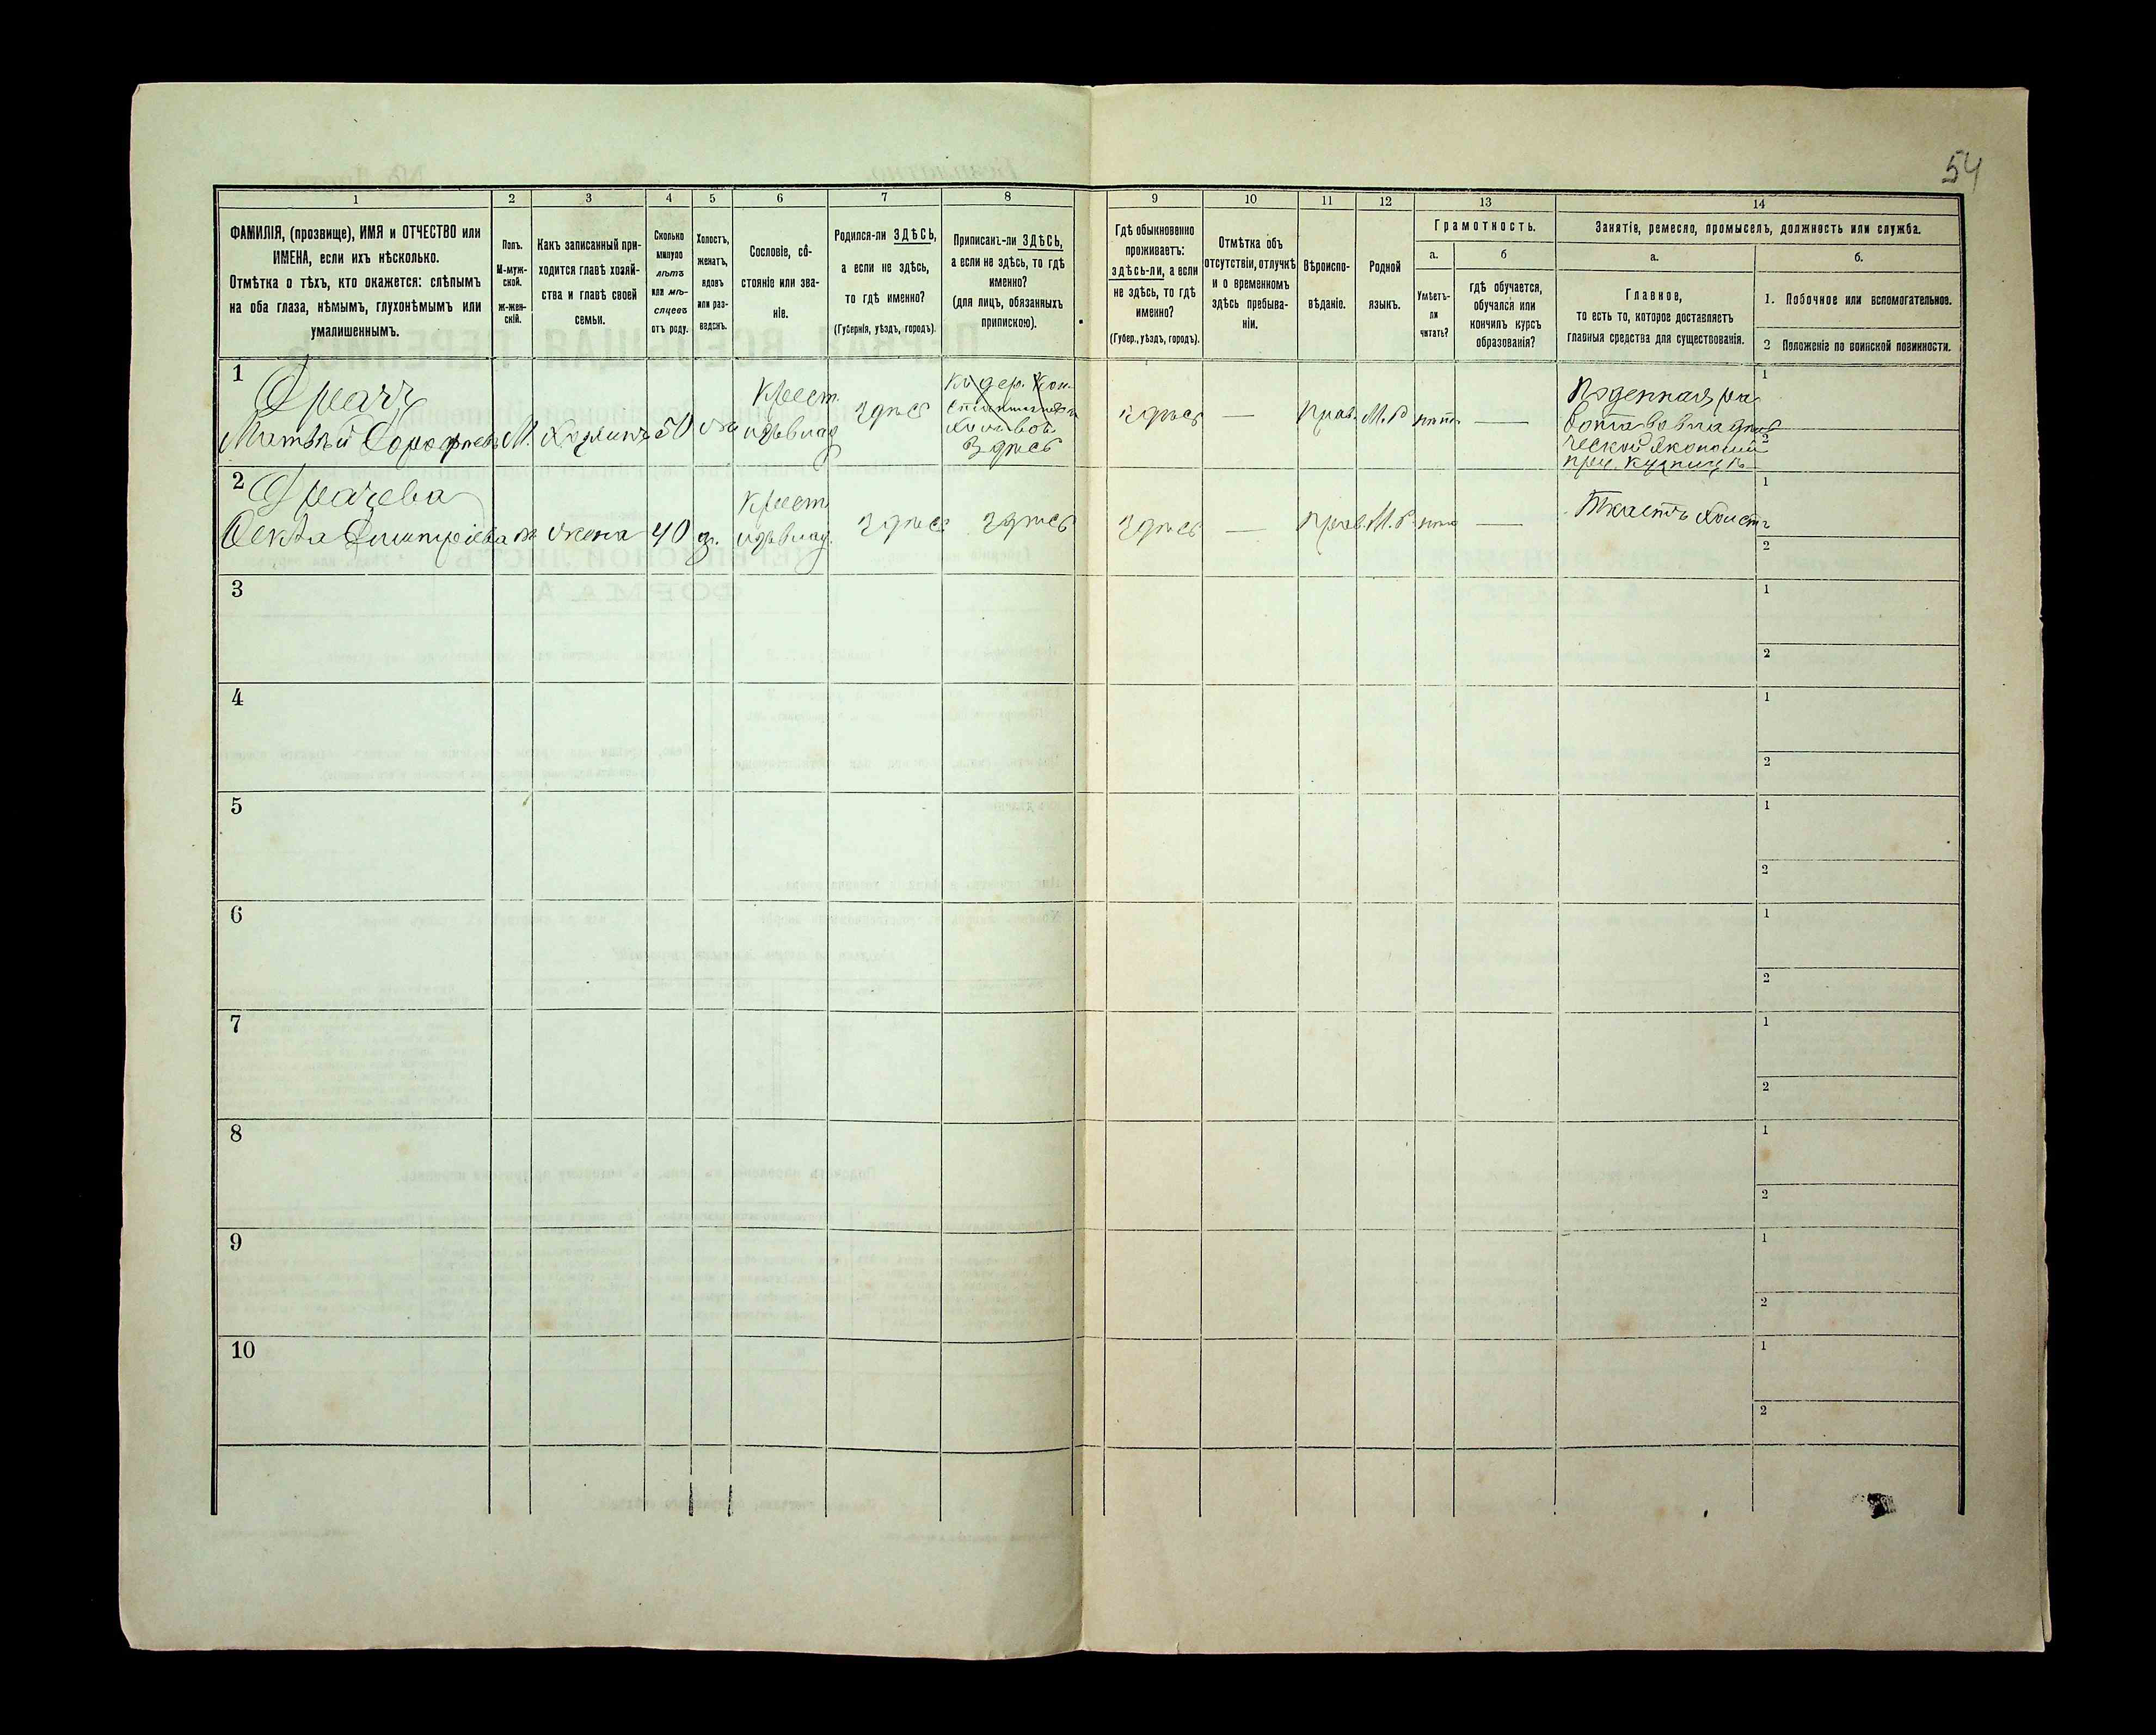 54
1
2
3
4
5
6
7
8
9
10
11
12
13
14
ФАМИЛІЯ, (прозвище), ИМЯ и ОТЧЕСТВО или
ИМЕНА, если ихъ нѣсколько.
Отмѣтка о тѣхъ, кто окажется: слѣпымъ
на оба глаза, нѣмымъ, глухонѣмымъ или
умалишеннымъ.
Полъ.
М-муж-
ской.
ж-жен-
скій.
Какъ записанный при-
ходится главѣ хозяй-
ства и главѣ своей
семьи.
Сколько
минуло
лѣтъ
или мѣ-
сяцевъ
отъ роду.
Холостъ,
женатъ,
вдовъ
или раз-
веденъ.
Сословіе, со-
стояніе или зва-
ніе.
Родился-ли ЗДѢСЬ,
а если не здѣсь,
то гдѣ именно?
(Губернія, уѣздъ, городъ).
Приписанъ-ли ЗДѢСЬ,
а если не здѣсь, то гдѣ
именно?
(для лицъ, обязанныхъ
припискою).
Гдѣ обыкновенно
проживаетъ:
здѣсь-ли, а если
не здѣсь, то гдѣ
именно?
(Губер., уѣздъ, городъ).
Отмѣтка объ
отсутствіи, отлучкѣ
и о временномъ
здѣсь пребыва-
ніи.
Вѣроиспо-
вѣданіе.
Родной
языкъ.
Грамотность.
а.
Умѣетъ-
ли
читать?
б
гдѣ обучается,
обучался или
кончилъ курсъ
образованія?
Занятіе, ремесло, промыселъ, должность или служба.
а.
Главное,
то есть то, которое доставляетъ
главныя средства для существованія.
б.
1. Побочное или вспомогательное.
2 Положеніе по воинской повинности.
1
Драчъ
Матвѣй М. Хозяинъ 50
Крест.
издѣвлад
здѣсь
Здѣсь
здѣсь
—
прав. М.Р нѣтъ —
Поденная ра
бота во владѣль
ческой экономіи
1
2
2
Драчева
Ѳекла Дмитріева ж жена 40 з.
Крест
издѣвлад.
здѣсь
здѣсь
здѣсь
—
прав. М.Р. нѣтъ —
Ткаетъ холстъ
1
2
3
1
2
4
1
2
5
1
2
6
1
2
7
1
2
8
1
2
9
1
2
10
1
2